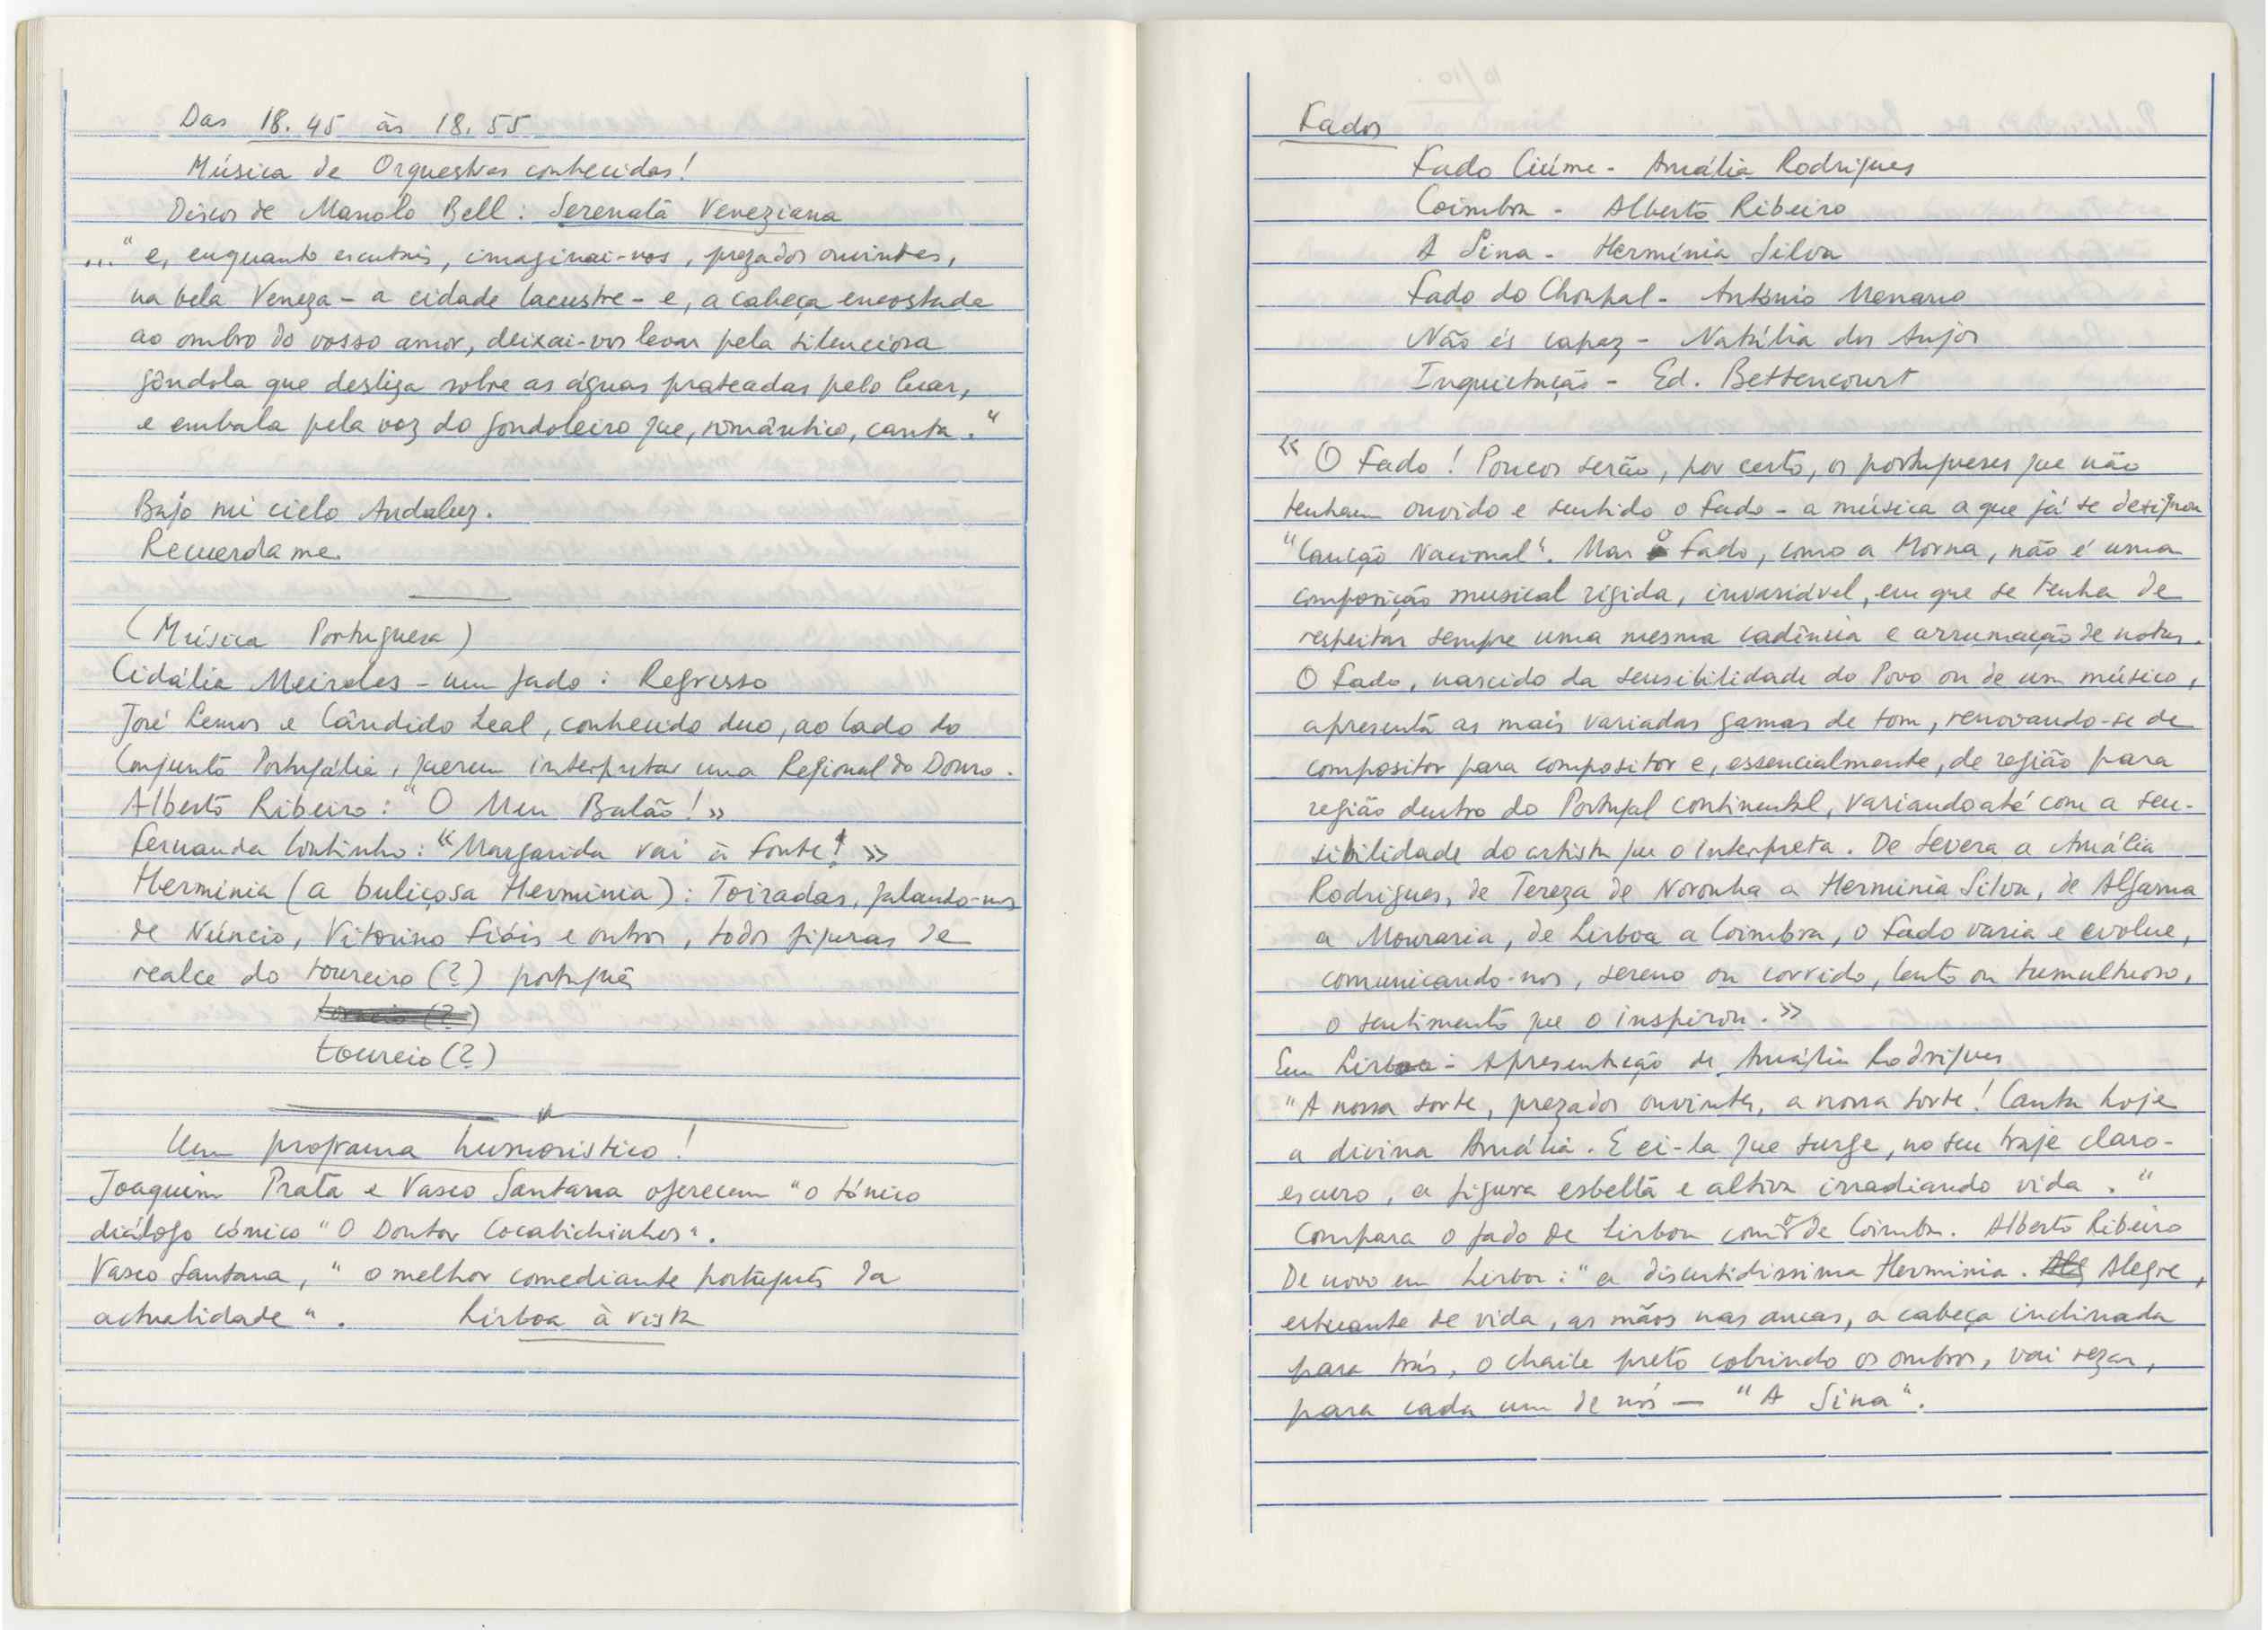 Das 18.45 às 18.55
Música de Orquestras conhecidas!
Discos de Manolo Bell: Serenata Veneziana
..." e, enquanto escutais, imaginai-vos, prezados ouvintes,
na bela Veneza - a cidade lacustre - e, a cabeça encostada
ao ombro do vosso amor, deixai-vos levar pela silenciosa
gôndola que desliza sobre as águas prateadas pelo luar,
e embala pela voz do gondoleiro que, romântico, canta."
Bajo mi cielo Andaluz.
Recuerdame.
(Música Portuguesa)
Cidália Meireles - um fado: Regresso
José Lemos e Cândido Leal, conhecido duo, ao lado do
Conjunto Portugália, querem interpretar uma Regional do Douro.
Alberto Ribeiro: "O Meu Balão!»
Fernanda Coutinho: «Margarida vai à fonte!»
Hermínia (a buliçosa Hermínia): Toiradas, falando-nos
de Núncio, Vitorino Fróis e outros, todos figuras de
realce do toureiro (?) português
toureio (?)
Um programa humorístico!
Joaquim Prata e Vasco Santana oferecem "o tónico
diálogo cómico "O Doutor Cocabichinhos".
Vasco Santana, "o melhor comediante português da
actualidade". Lisboa à vista
Fados
Fado Ciúme - Amália Rodrigues
Coimbra - Alberto Ribeiro
A Sina - Hermínia Silva
Fado do Choupal - António Menano
Não és capaz - Natália dos Anjos
Inquietação - Ed. Bettencourt
«O Fado! Poucos serão, por certo, os portugueses que não
tenham ouvido e sentido o Fado - a música a que já se designou
"Canção Nacional". Mas o Fado, como a Morna, não é uma
composição musical rígida, invariável, em que se tenha de
respeitar sempre uma mesma cadência e arrumação de notas.
O Fado, nascido da sensibilidade do Povo ou de um músico,
apresenta as mais variadas gamas de tom, renovando-se de
compositor para compositor e, essencialmente, de região para
região dentro do Portugal continental, variando até com a sen-
sibilidade do artista que o interpreta. De Severa a Amália
Rodrigues, de Tereza de Noronha a Hermínia Silva, de Alfama
a Mouraria, de Lisboa a Coimbra, o Fado varia e evolue,
comunicando-nos, sereno ou corrido, lento ou tumultuoso,
o sentimento que o inspirou.»
Em Lisboa - Apresentação de Amália Rodrigues
"A nossa sorte, prezados ouvintes, a nossa sorte! Canta hoje
a divina Amália. E ei-la que surge, no seu traje claro-
escuro, a figura esbelta e altiva irradiando vida."
Compara o fado de Lisboa com o de Coimbra. Alberto Ribeiro
De novo em Lisboa: "a discutidissima Hermínia. Alegre,
estuante de vida, as mãos nas ancas, a cabeça inclinada
para trás, o chaile preto cobrindo os ombros, vai rezar,
para cada um de nós - "A Sina".